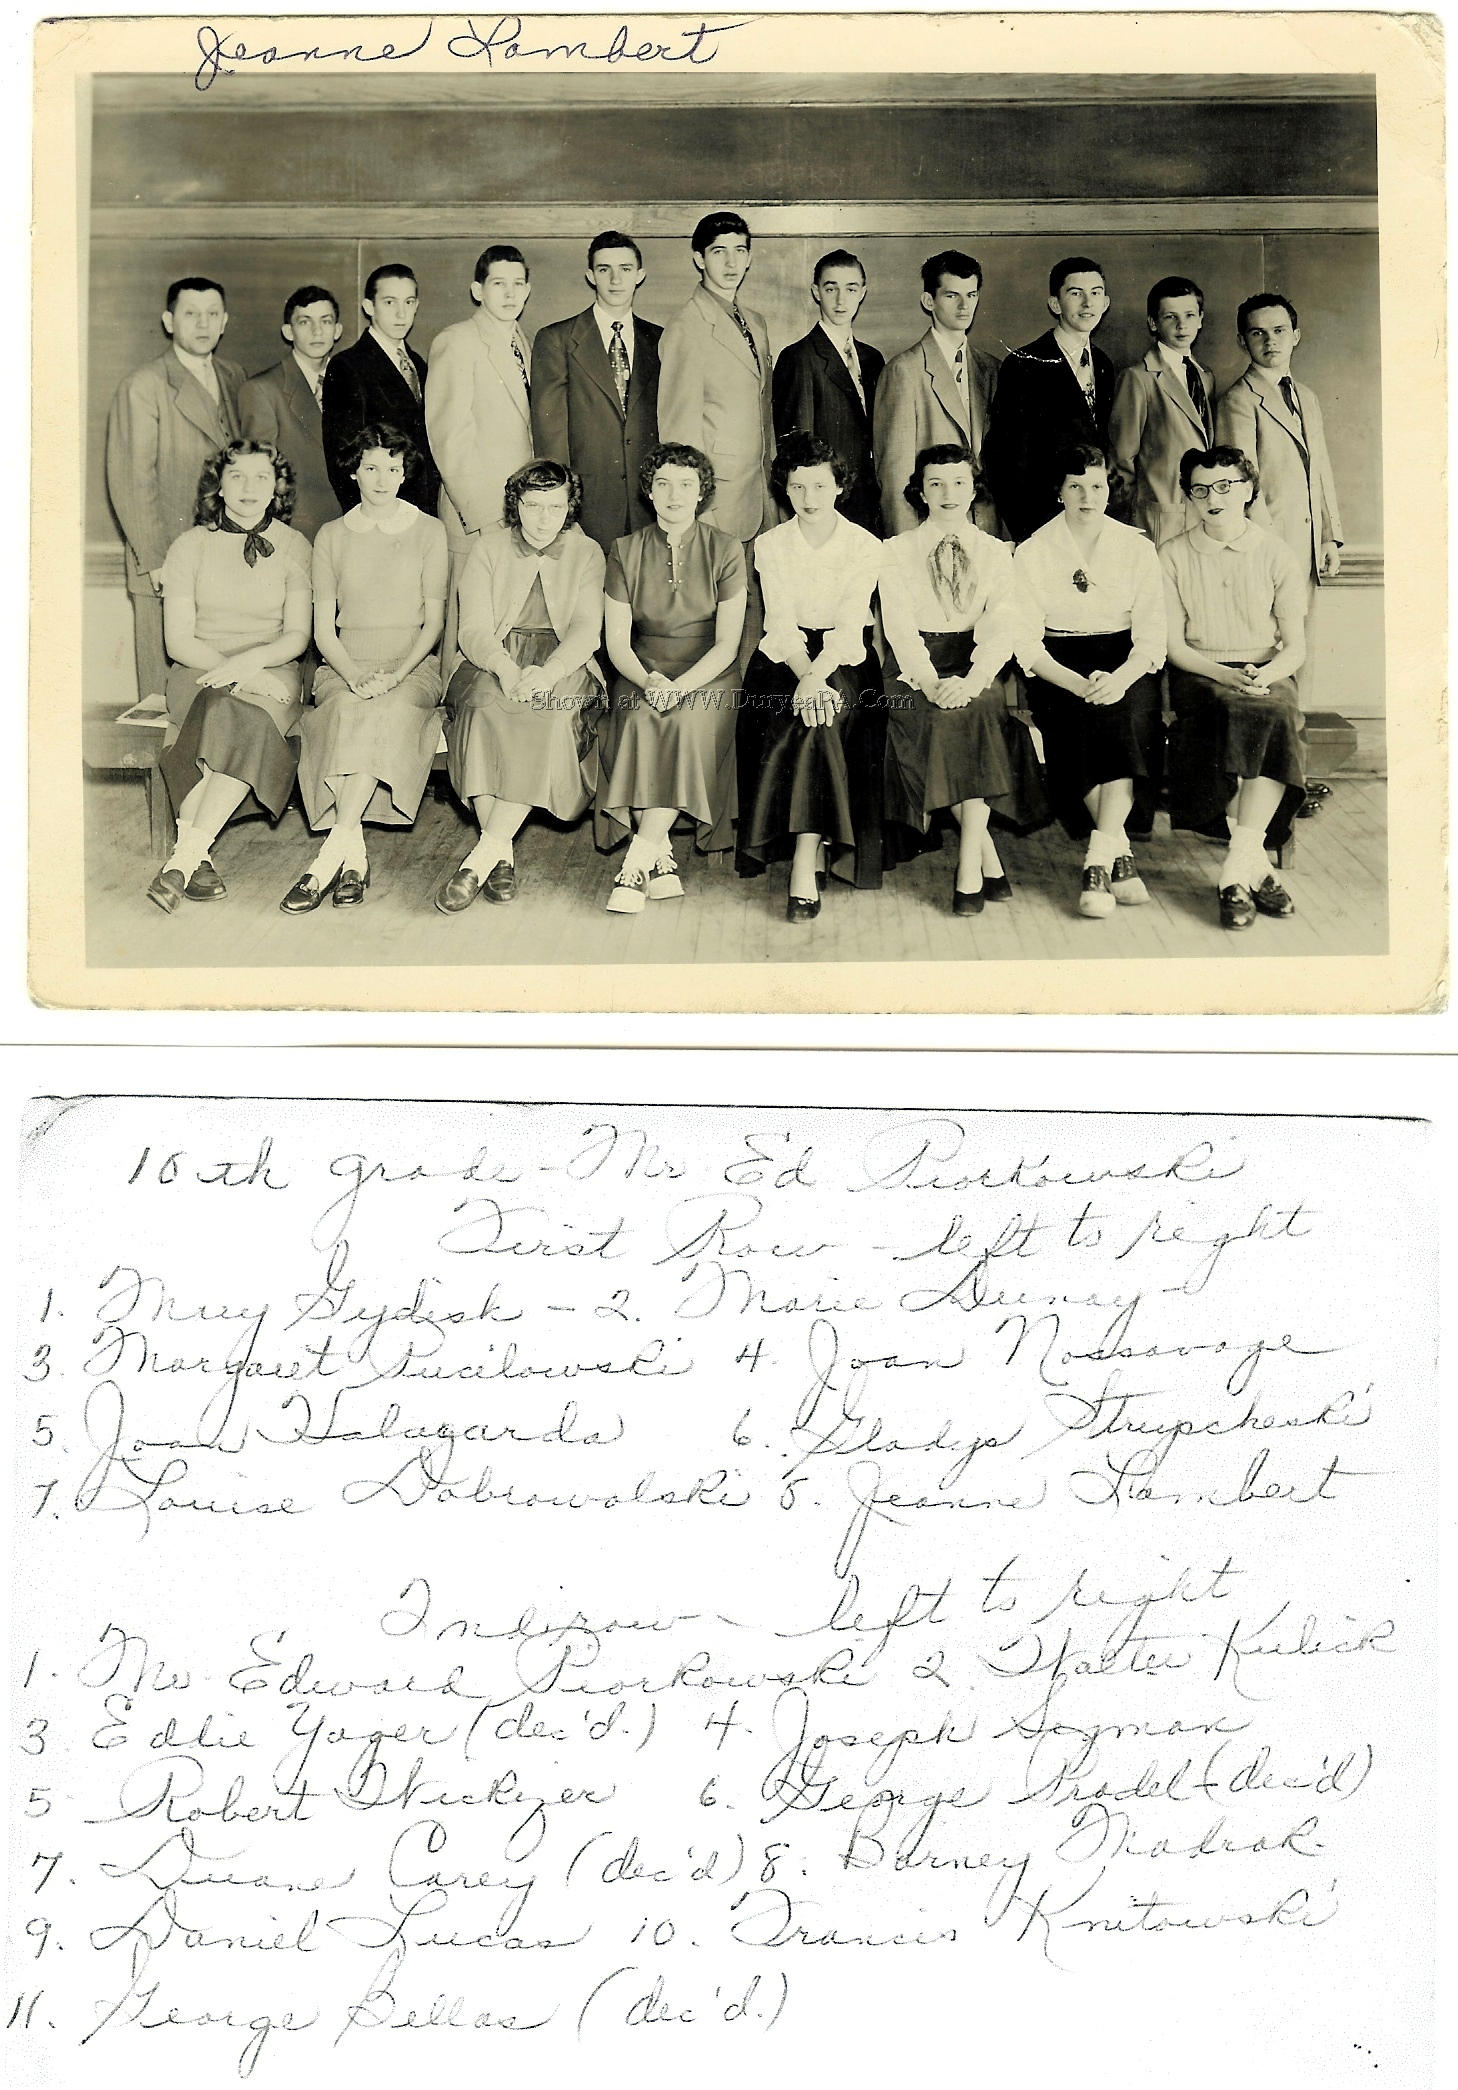 Jeanne Lambert
Shown at WWW.DuryeaPA.Com
10th grade - Mr Ed Piorkowski
First Row - left to right
1. Mary Gydish - 2. Marie Dunay
3. Margaret Pucilowski 4. Joan Nossavage
5. Joan 6. Gladys Strupcheski
7. Louise Dobrowolski 8. Jeanne Lambert
2nd row - left to right
1. Mr Edward Piorkowski 2. Walter Kulick
3 Eddie Yager (dec'd.) 4. Joseph Szyman
5 Robert Wickizer 6. George Pradel - (dec'd)
7. Duane Carey (dec'd) 8. Barney Madrak
9. Daniel Lucas 10. Francis Knitowski
11. George Bellas (dec'd.)